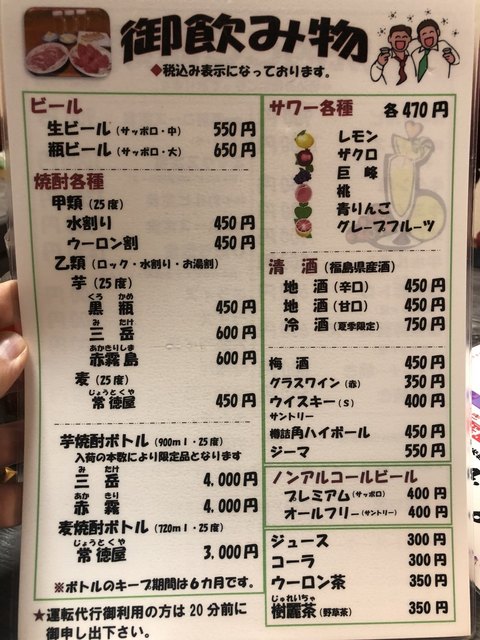 御飲み物
◆税込み表示になっております。
ビール
生ビール(サッポロ・中) 550円
瓶ビール(サッポロ・大) 650円
焼酎各種
甲類(25度)
水割り 450円
ウーロン割 450円
乙類(ロック・水割り・お湯割)
芋(25度)
くろ かめ
黒 瓶 450円
み たけ
三 岳 600円
あかきりしま
赤霧島 600円
麦(25度)
じょうとくや
常徳屋 450円
芋焼酎ボトル(900ml・25度)
入荷の本数により限定品となります
み たけ
三 岳 4,000円
あか きり
赤 霧 4,000円
麦焼酎ボトル(720ml・25度)
じょうとくや
常徳屋 3,000円
※ボトルのキープ期間は6カ月です。
サワー各種 各470円
レモン
ザクロ
巨峰
桃
青りんご
グレープフルーツ
清 酒(福島県産酒)
地 酒(辛口) 450円
地 酒(甘口) 450円
冷 酒(夏季限定) 750円
梅 酒 450円
グラスワイン(赤) 350円
ウイスキー(S) 400円
サントリー
樽詰角ハイボール 450円
ジーマ 550円
ノンアルコールビール
プレミアム(サッポロ) 400円
オールフリー(サントリー) 400円
ジュース 300円
コーラ 300円
ウーロン茶 350円
じゅれいちゃ
樹麗茶(野草茶) 350円
★運転代行御利用の方は20分前に
御申し出下さい。